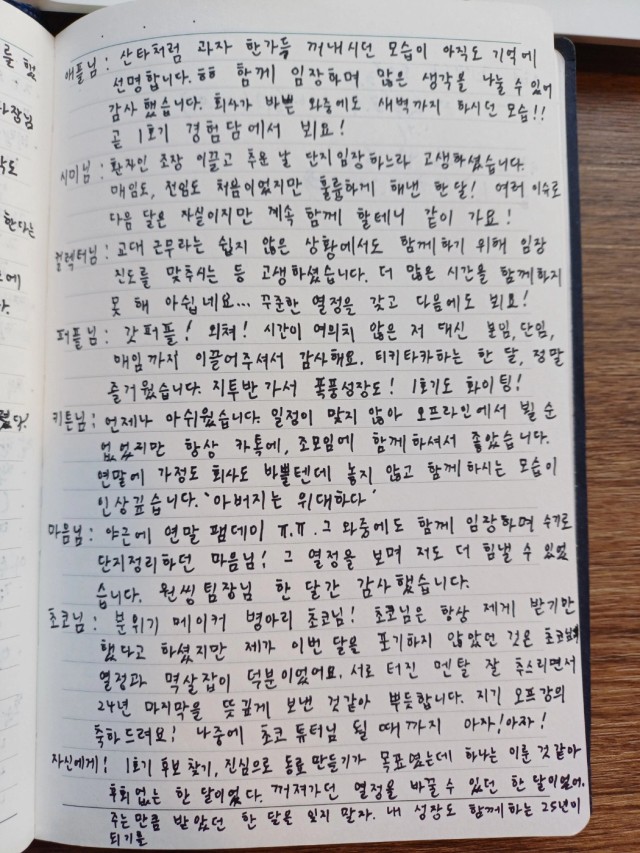 를 했
사장님
각도
한다는
에
다.
렸다!
애플님 : 산타처럼 과자 한가득 꺼내시던 모습이 아직도 기억에
선명합니다. ㅎㅎ 함께 임장하며 많은 생각을 나눌 수 있어
감사했습니다. 회사가 바쁜 와중에도 새벽까지 하시던 모습!!
곧 1호기 경험담에서 뵈요!
시미님 : 환자인 조장 이끌고 추운 날 단지임장하느라 고생하셨습니다.
매임도, 전임도 처음이었지만 훌륭하게 해낸 한 달! 여러 이슈로
다음 달은 자실이지만 계속 함께 할테니 같이 가요!
컬렉터님 : 교대 근무라는 쉽지 않은 상황에서도 함께하기 위해 임장
진도를 맞추시는 등 고생하셨습니다. 더 많은 시간을 함께하지
못 해 아쉽네요... 꾸준한 열정을 갖고 다음에도 뵈요!
퍼플님 : 갓퍼플! 외쳐! 시간이 여의치 않은 저 대신 분임, 단임,
매임까지 이끌어주셔서 감사해요. 티키타카하는 한 달, 정말
즐거웠습니다. 지투반 가서 폭풍성장도! 1호기도 화이팅!
키튼님 : 언제나 아쉬웠습니다. 일정이 맞지 않아 오프라인에서 뵐 순
없었지만 항상 카톡에, 조모임에 함께하셔서 좋았습니다.
연말에 가정도 회사도 바쁠텐데 놓지 않고 함께하시는 모습이
인상깊습니다. '아버지는 위대하다'
마음님 : 야근에 연말 팸데이 ㅠ.ㅠ. 그 와중에도 함께 임장하며 수기로
단지정리하던 마음님! 그 열정을 보며 저도 더 힘낼 수 있었
습니다. 원씽팀장님 한 달간 감사했습니다.
초코님 : 분위기 메이커 병아리 초코님! 초코님은 항상 제게 받기만
했다고 하셨지만 제가 이번 달을 포기하지 않았던 것은 초코님의
열정과 멱살잡이 덕분이었어요. 서로 터진 멘탈 잘 추스리면서
24년 마지막을 뜻깊게 보낸 것같아 뿌듯합니다. 지기 오프강의
축하드려요! 나중에 초코 튜터님 될 때까지 아자!아자!
자신에게! 1호기 후보 찾기, 진심으로 동료 만들기가 목표였는데 하나는 이룬 것 같아
후회없는 한 달이었다. 꺼져가던 열정을 바꿀 수 있던 한 달이었어.
주는만큼 받았던 한 달을 잊지 말자. 내 성장도 함께하는 25년이
되기를